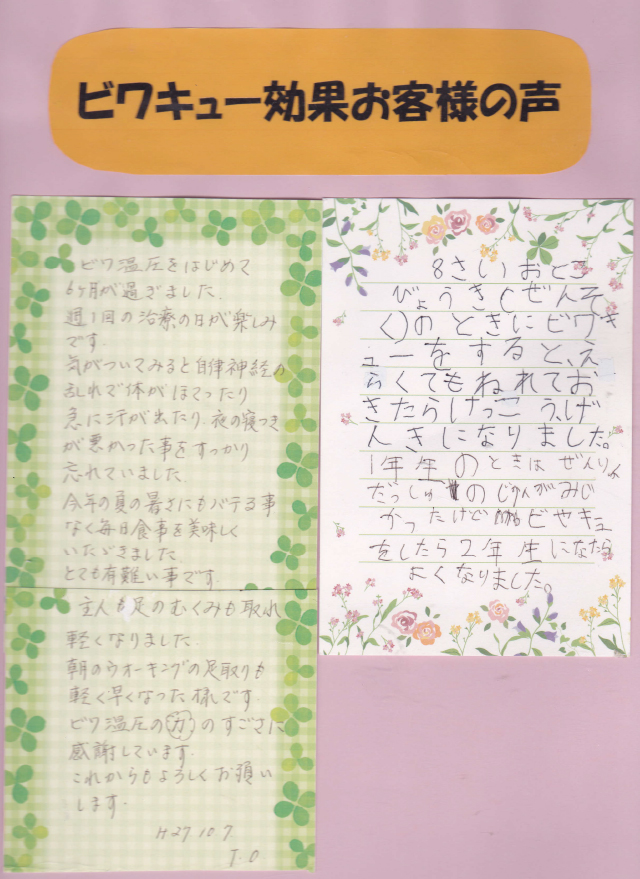 ビワキュー効果お客様の声
ビワ温圧をはじめて
6ヶ月が過ぎました.
週1回の治療の日が楽しみ
です.
気がついてみると自律神経の
乱れで体がほてったり
急に汗が出たり.夜の寝つき
が悪かった事をすっかり
忘れていました.
今年の夏の暑さにもバテる事
なく毎日食事を美味しく
いただきました
とても有難い事です.
主人も足のむくみも取れ
軽くなりました.
朝のウオーキングの足取りも
軽く早くなった様です.
ビワ温圧の力のすごさに
感謝しています.
これからもよろしくお願い
します.
H27.10.7
T.O
8さいおとこ
びょうき(ぜんそ
く)のときにビワキ
ューをすると、え
らくてもねれてお
きたらけっこうげ
んきになりました。
1年生のときはぜんりょ
だっしゅの
かったけど ビやキュ
をしたら2年生になたら
よくなりました。